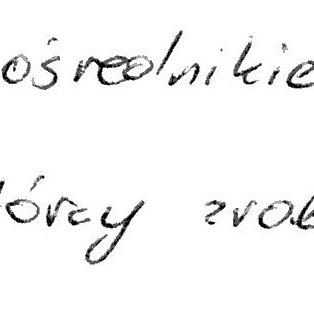 ośrednikie
tórzy zrob